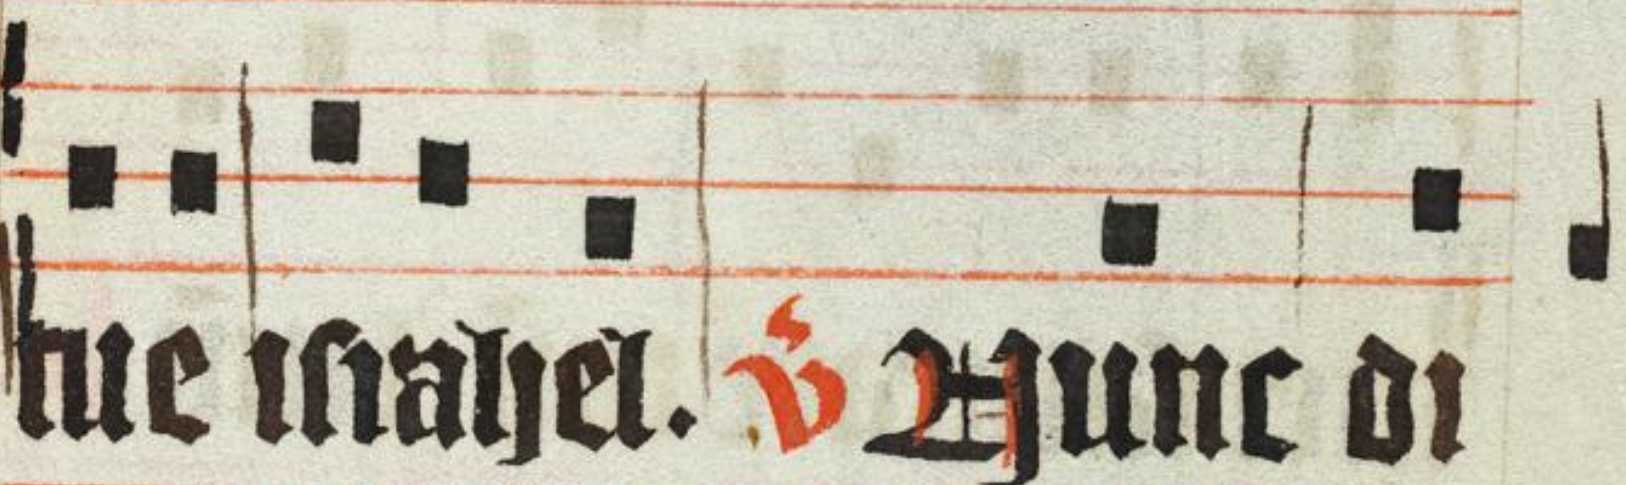 tue israhel. V̓ Nunc di